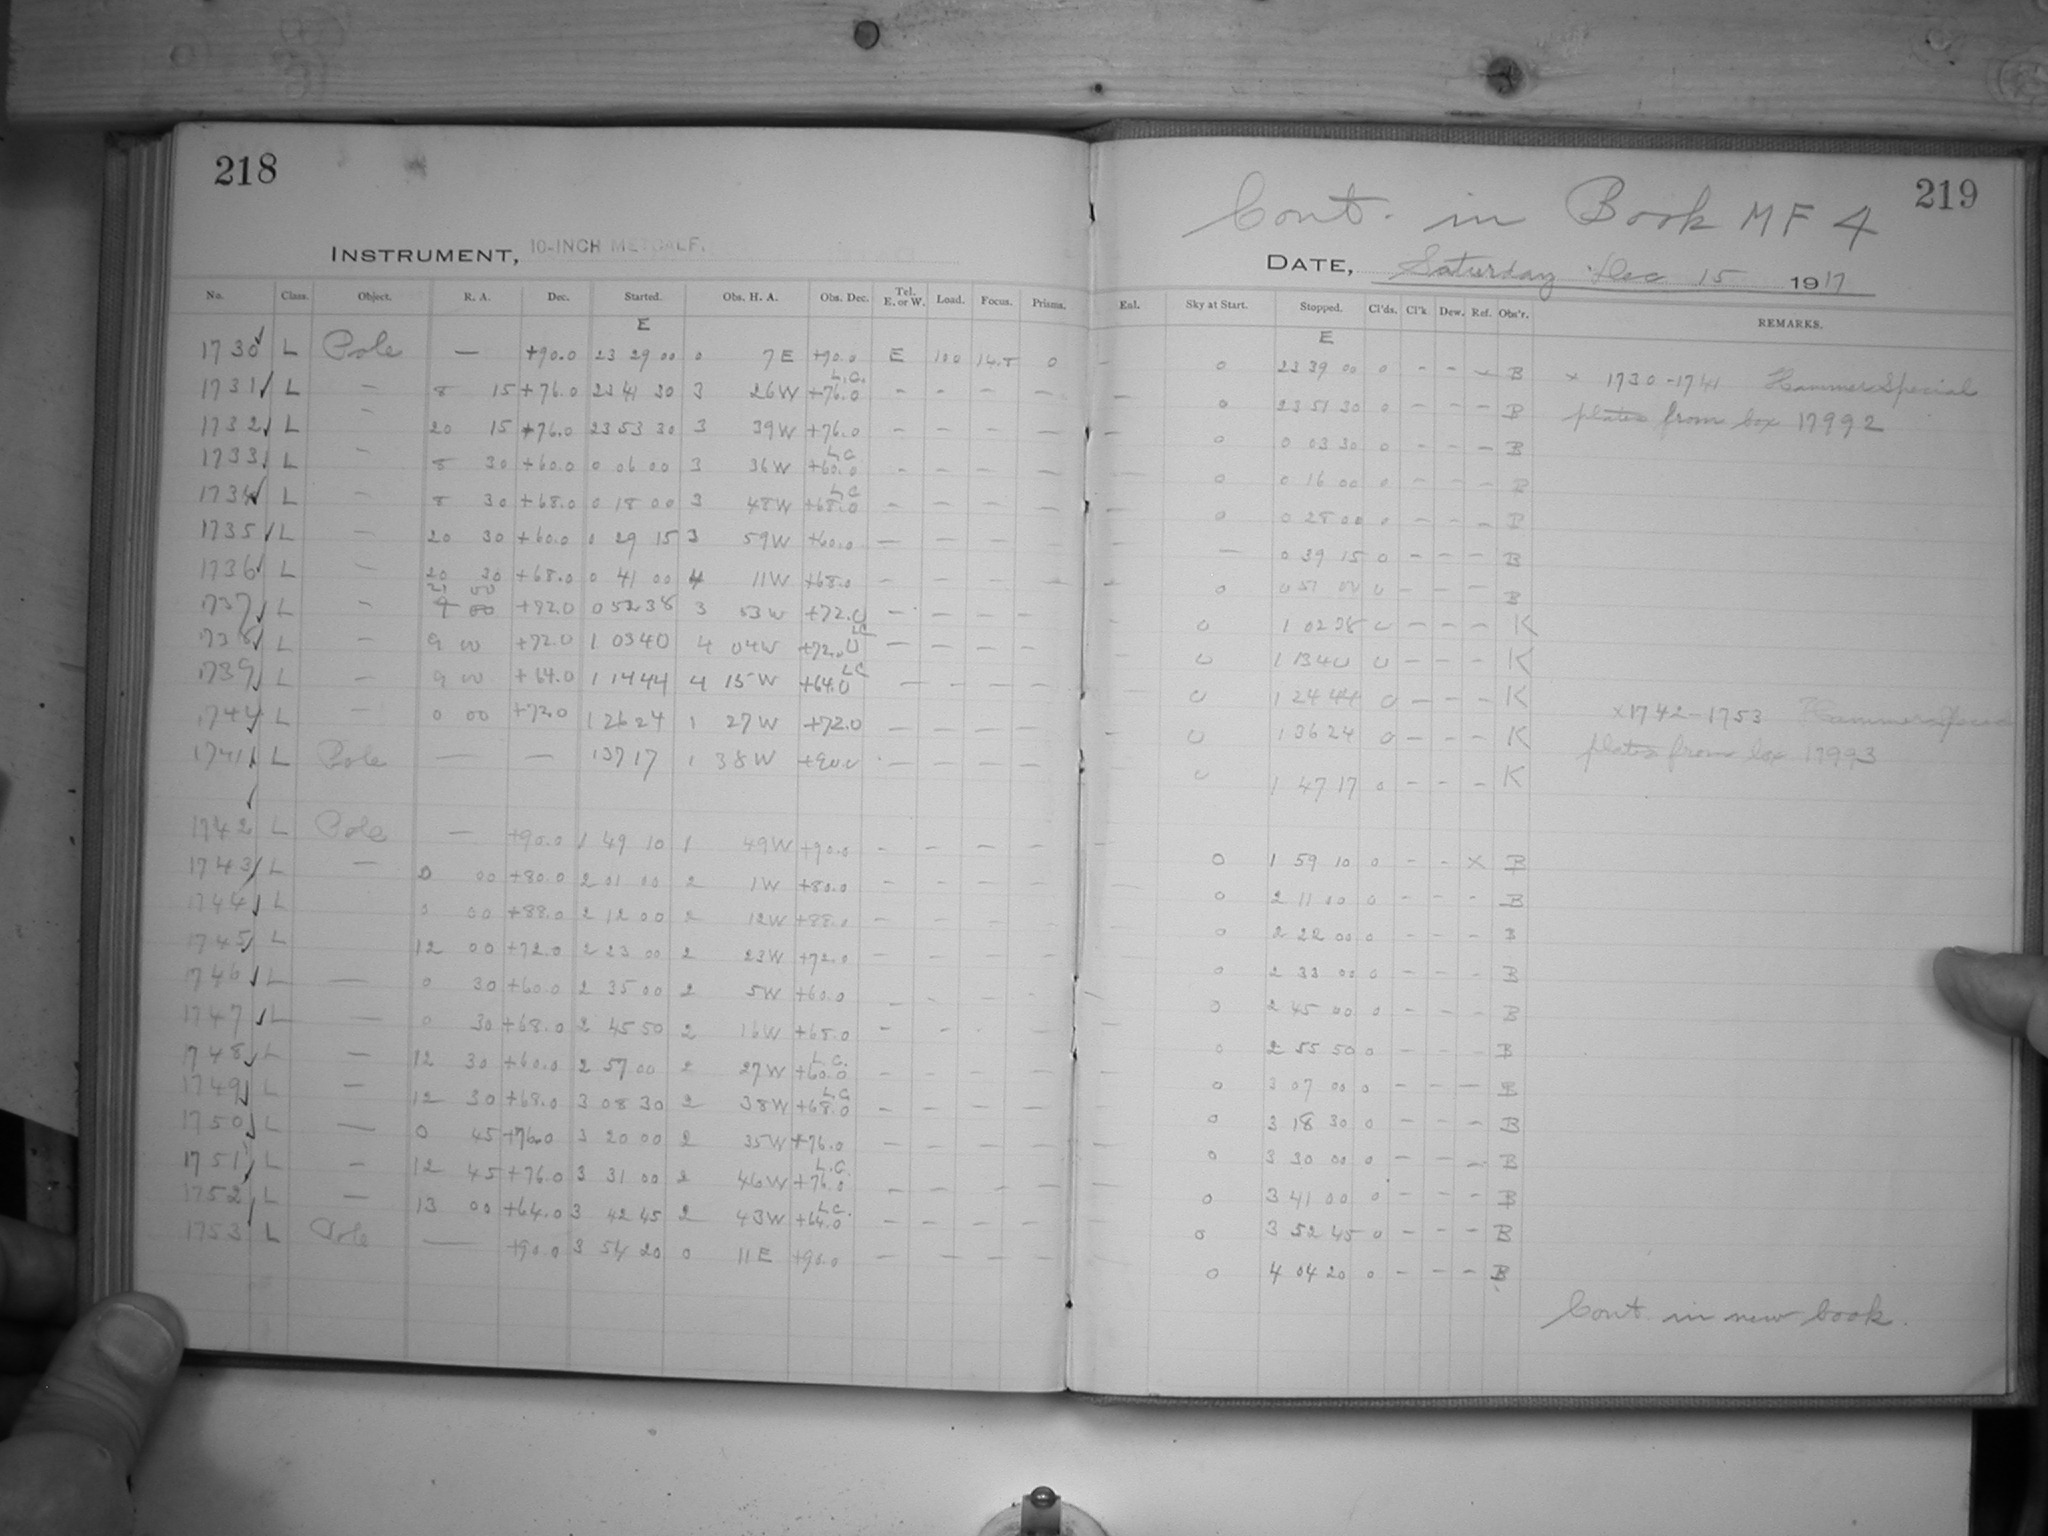 218
INSTRUMENT, 10-INCH METCALF.
No. Class. Object. R. A. Dec. Started. Obs. H. A. Obs. Dec. Tel. E. or W. Load. Focus. Prisms.
E
1730 L Pole — +90.0 23 29 00 0 7 E +90.0 E 100 14.8 0
1731 L — 8 15 +76.0 23 41 30 3 26 W L.C. +76.0 - - - -
1732 L — 20 15 +76.0 23 53 30 3 39 W +76.0 - - - -
1733 L — 8 30 +60.0 0 06 00 3 36 W L.C. +60.0 - - - -
1734 L — 8 30 +68.0 0 18 00 3 48 W L.C. +68.0 - - - -
1735 L — 20 30 +60.0 0 29 15 3 59 W +60.0 - - - -
1736 L — 20 30 +68.0 0 41 00 4 11 W +68.0 - - - -
1737 L — 21 00 +72.0 0 52 38 3 53 W +72.0 - - - -
1738 L — 9 00 +72.0 1 03 40 4 04 W LC +72.0 - - - -
1739 L — 9 00 +64.0 1 14 44 4 15 W LC +64.0 - - - -
1740 L — 0 00 +72.0 1 26 24 1 27 W +72.0 - - - -
1741 L Pole — — 1 37 17 1 38 W +90.0 - - - -
1742 L Pole — +90.0 1 49 10 1 49 W +90.0 - - - -
1743 L — 0 00 +80.0 2 01 00 2 1 W +80.0 - - - -
1744 L 0 00 +88.0 2 12 00 2 12 W +88.0 - - - -
1745 L 12 00 +72.0 2 23 00 2 23 W +72.0 - - - -
1746 L — 0 30 +60.0 2 35 00 2 5 W +60.0 - - - -
1747 L — 0 30 +68.0 2 45 50 2 16 W +68.0 - - - -
1748 L — 12 30 +60.0 2 57 00 2 27 W L.C. +60.0 - - - -
1749 L — 12 30 +68.0 3 08 30 2 38 W L.C. +68.0 - - - -
1750 L — 0 45 +76.0 3 20 00 2 35 W +76.0 - - - -
1751 L — 12 45 +76.0 3 31 00 2 46 W L.C. +76.0 - - - -
1752 L — 13 00 +64.0 3 42 45 2 43 W L.C. +64.0 - - - -
1753 L Pole — +90.0 3 54 20 0 11 E +90.0 - - - -
219
Cont. in Book MF 4
DATE, Saturday Dec 15 1917
Eul. Sky at Start. Stopped. Cl'ds. Cl'k. Dew. Ref. Obs'r. REMARKS.
E
- 0 23 39 00 0 - - x B x 1730-1741 Hammer Special
- 0 23 51 30 0 - - - B plates from box 17992
- 0 0 03 30 0 - - - B
- 0 0 16 00 0 - - - B
- 0 0 28 00 0 - - - B
- — 0 39 15 0 - - - B
- 0 0 51 00 0 - - - B
0 1 02 38 0 - - - K
0 1 13 40 0 - - - K
0 1 24 44 0 - - - K
x 1742-1753 Hammer Special
- 0 1 36 24 0 - - - K
plates from box 17993
0 1 47 17 0 - - - K
- 0 1 59 10 0 - - x B
0 2 11 00 0 - - - B
0 2 22 00 0 - - - B
0 2 33 00 0 - - - B
- 0 2 45 00 0 - - - B
- 0 2 55 50 0 - - - B
0 3 07 00 0 - - - B
0 3 18 30 0 - - - B
0 3 30 00 0 - - - B
0 3 41 00 0 - - - B
0 3 52 45 0 - - - B
0 4 04 20 0 - - - B
Cont. in new book.